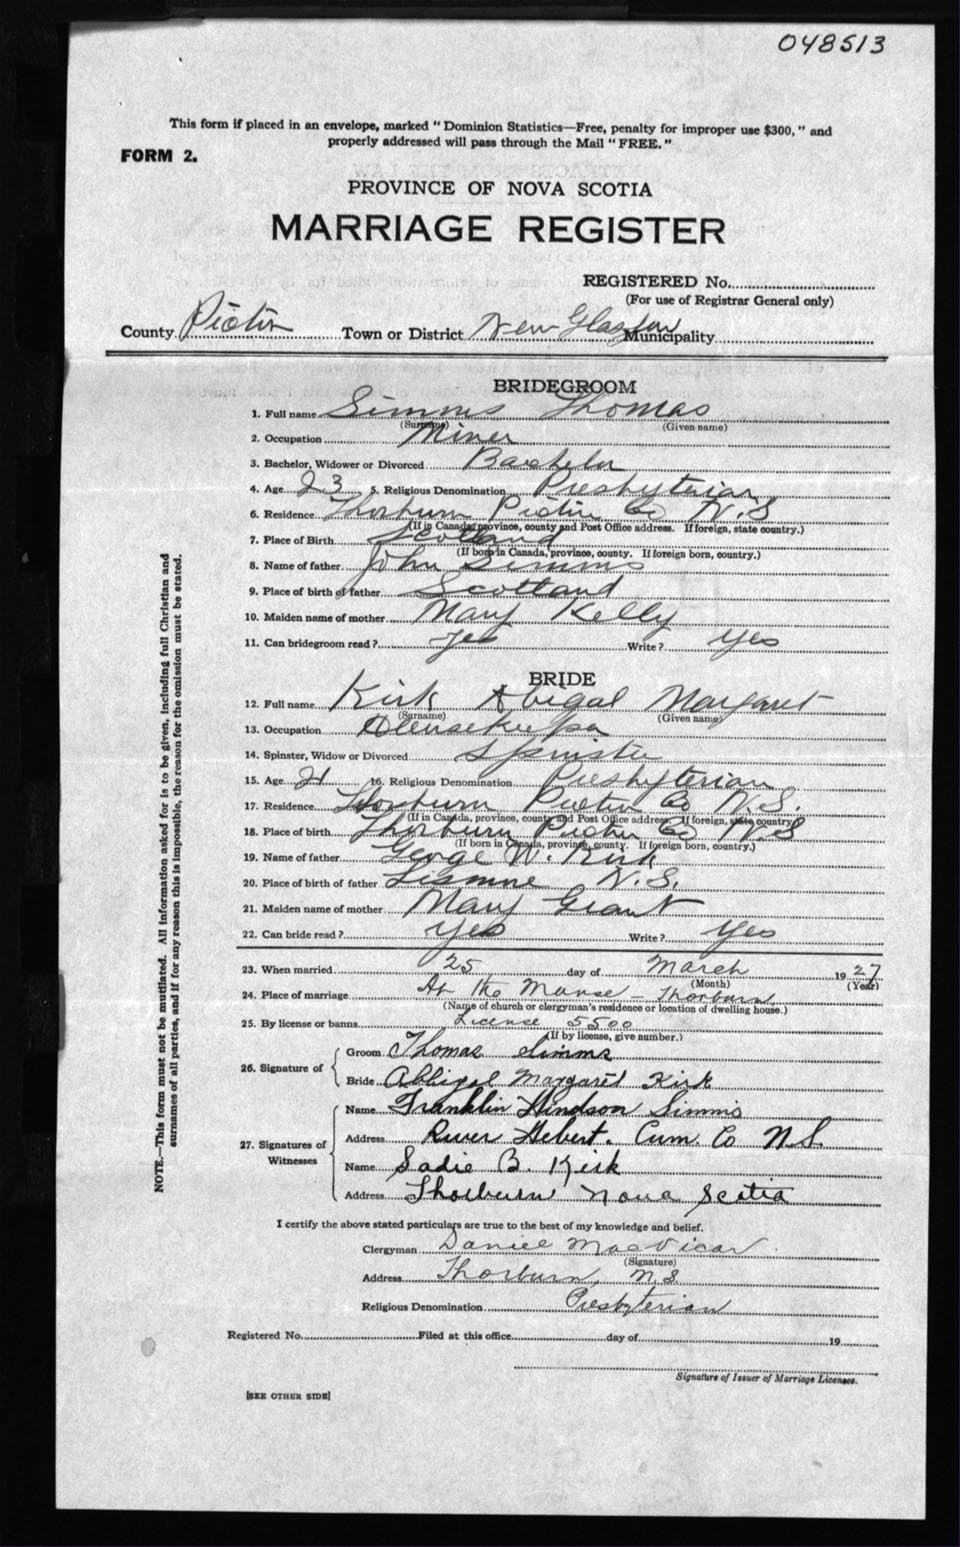 048513
This form if placed in an envelope, marked "Dominion Statistics—Free, penalty for improper use $300," and
properly addressed will pass through the Mail "FREE."
FORM 2.
PROVINCE OF NOVA SCOTIA
MARRIAGE REGISTER
REGISTERED No.
(For use of Registrar General only)
County Pictou Town or District New Glasgow Municipality
BRIDEGROOM
1. Full name Simms Thomas
(Surname) (Given name)
2. Occupation Miner
3. Bachelor, Widower or Divorced Bachelor
4. Age 23 5. Religious Denomination Presbyterian
6. Residence Thorburn Pictou Co N.S
(If in Canada, province, county and Post Office address. If foreign, state country.)
7. Place of Birth Scotland
(If born in Canada, province, county. If foreign born, country.)
8. Name of father John Simms
9. Place of birth of father Scotland
10. Maiden name of mother Mary Kelly
11. Can bridegroom read? yes Write? yes
BRIDE
12. Full name Kirk Abigal Margaret
(Surname) (Given name)
13. Occupation Housekeeper
14. Spinster, Widow or Divorced Spinster
15. Age 21 16. Religious Denomination Presbyterian
17. Residence Thorburn Pictou Co N.S.
(If in Canada, province, county and Post Office address. If foreign, state country)
18. Place of birth Thorburn Pictou Co N.S
(If born in Canada, province, county. If foreign born, country.)
19. Name of father George W. Kirk
20. Place of birth of father Lismore N.S.
21. Maiden name of mother Mary Grant
22. Can bride read? yes Write? yes
23. When married 25 day of March 1927
(Month) (Year)
24. Place of marriage At the Manse - Thorburn
(Name of church or clergyman's residence or location of dwelling house.)
25. By license or banns License 5500
(If by license, give number.)
26. Signature of Groom Thomas Simms
Bride Abbigal Margaret Kirk
27. Signatures of Witnesses Name Franklin Hindson Simms
Address River Hebert. Cum. Co N.S.
Name Sadie B. Kirk
Address Thorburn Nova Scotia
I certify the above stated particulars are true to the best of my knowledge and belief.
Clergyman Daniel MacVicar
(Signature)
Address Thorburn, N.S
Religious Denomination Presbyterian
Registered No. Filed at this office day of 19
Signature of Issuer of Marriage Licenses.
[SEE OTHER SIDE]
NOTE.—This form must not be mutilated. All information asked for is to be given, including full Christian and
surnames of all parties, and if for any reason this is impossible, the reason for the omission must be stated.